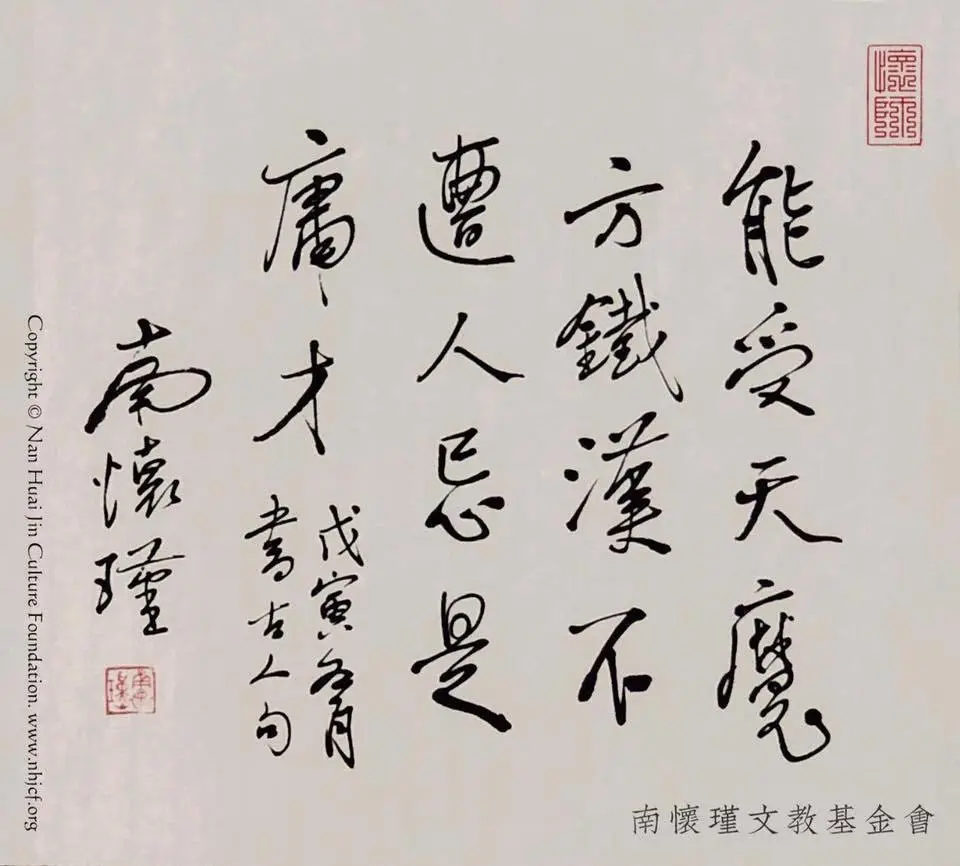 懷師
能受天魔
方鐵漢不
遭人忌是
庸才
戊寅 月
書古人句
南懷瑾
Copyright © Nan Huai Jin Culture Foundation. www.nhjcf.org
南懷瑾文教基金會